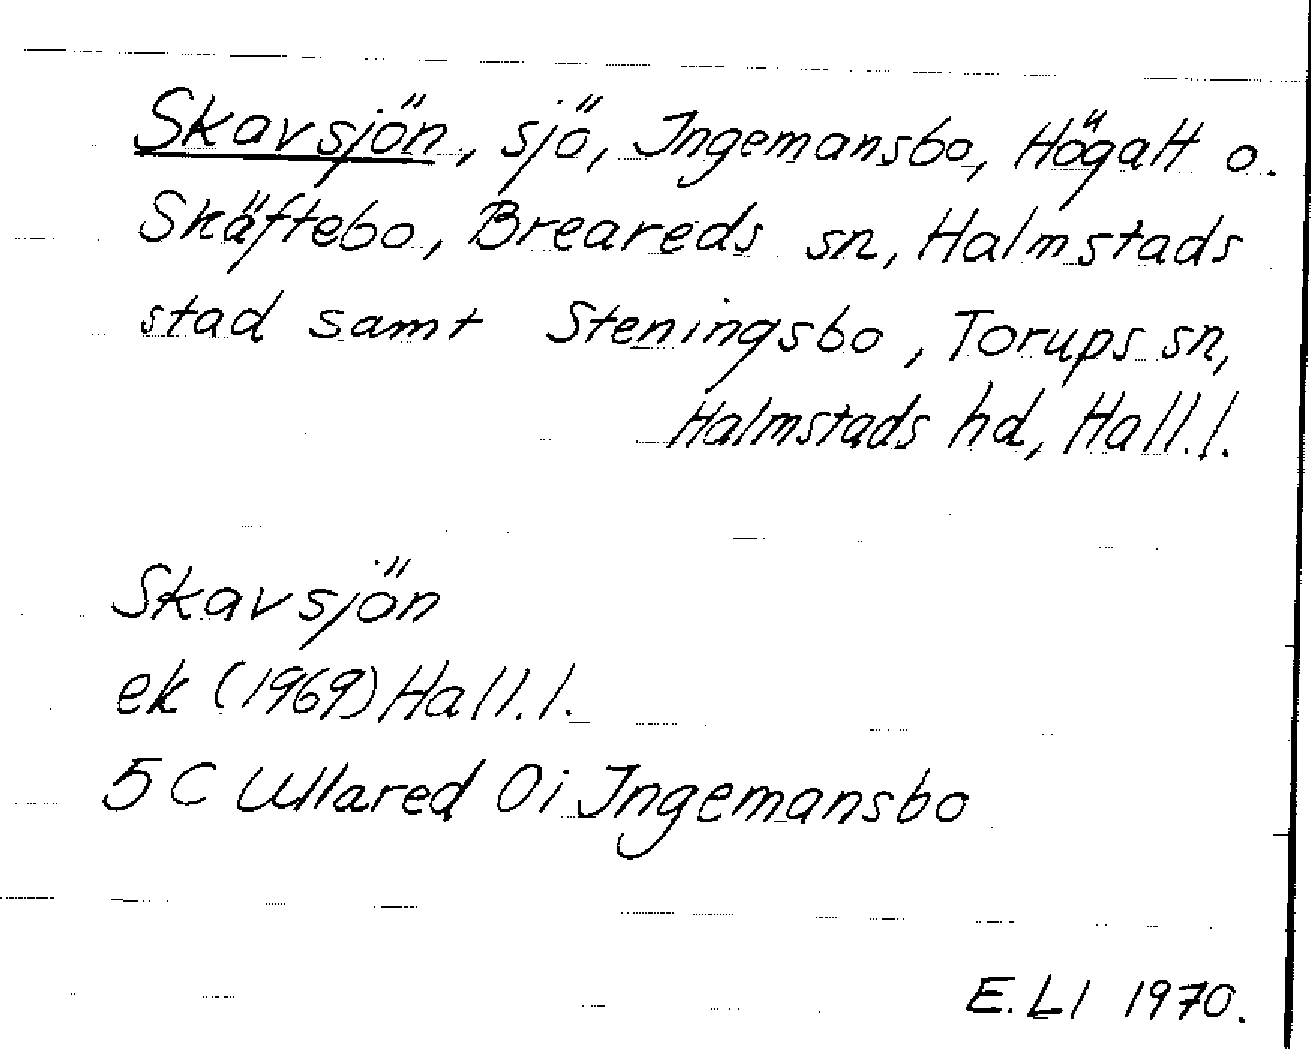 Skavsjön, sjö, Ingemansbo, Högalt o.
Skäftebo, Breareds sn, Halmstads
stad samt Steningsbo, Torups sn,
Halmstads hd, Hall.l.
Skavsjön
ek (1969) Hall.l.
5C Ullared 0i Ingemansbo
E.Ll 1970.